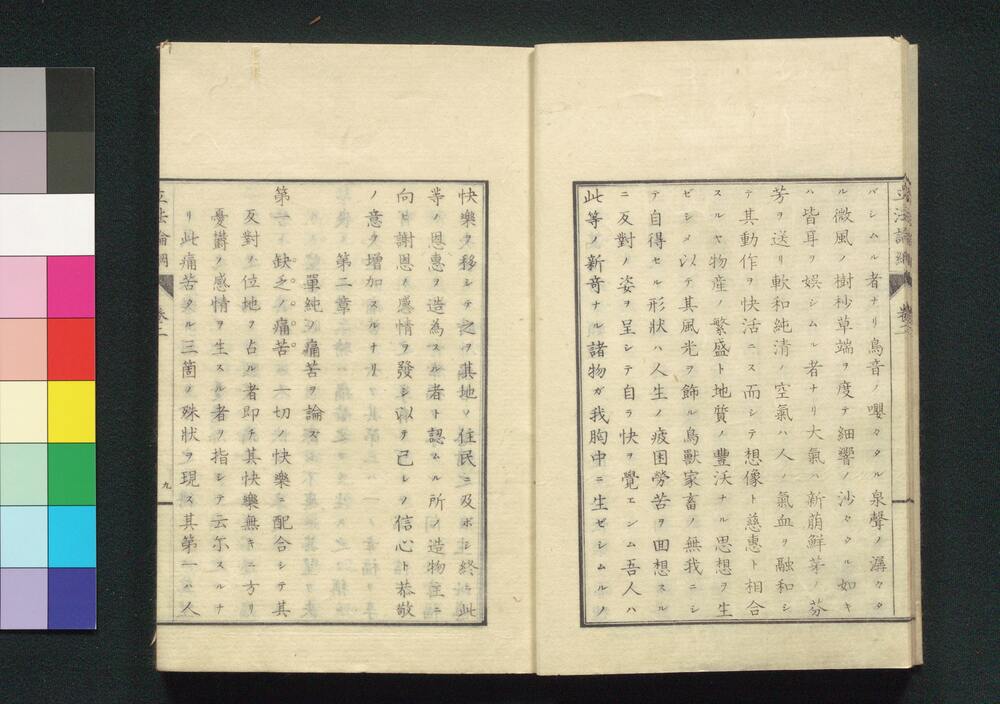 立法論綱 巻二
バシムル者ナリ鳥音ノ嚶々タル泉聲ノ潺々タ
ル微風ノ樹杪草端ヲ度テ細響ノ沙々タル如キ
ハ皆耳ヲ娯シムル者ナリ大氣ハ新萠鮮芽ノ芬
芳ヲ送リ軟和純清ノ空氣ハ人ノ氣血ヲ融和シ
テ其動作ヲ快活ニス而シテ想像ト慈惠ト相合
スルヤ物産ノ繁盛ト地質ノ豊沃ナル思想ヲ生
ゼシメ以テ其風光ヲ飾ル鳥獸家畜ノ無我ニシ
テ自得セル形狀ハ人生ノ疲困勞苦ヲ囬想スル
ニ反對ノ姿ヲ呈シテ自ラ快ヲ覺エシム吾人ハ
此等ノ新竒ナル諸物ガ我胸中ニ生ゼシムルノ
快樂ヲ移シテ之ヲ其地ノ住民ニ及ボシ終ニ此
等ノ恩惠ヲ造為スル者ト認ムル所ノ造物主ニ
向ヒ謝恩ノ感情ヲ發シ以テ己レノ信心ト恭敬
ノ意ヲ増加スルナリ
第二章
單純ノ痛苦ヲ論ズ
第一 缺乏ノ痛苦 一切ノ快樂ニ配合シテ其
反對ノ位地ヲ占ル者即チ其快樂無キニ方リ
憂欝ノ感情ヲ生スル者ヲ指シテ云尓スルナ
リ此痛苦タル三箇ノ殊狀ヲ現ス其第一ハ人
立法論綱 巻二 九